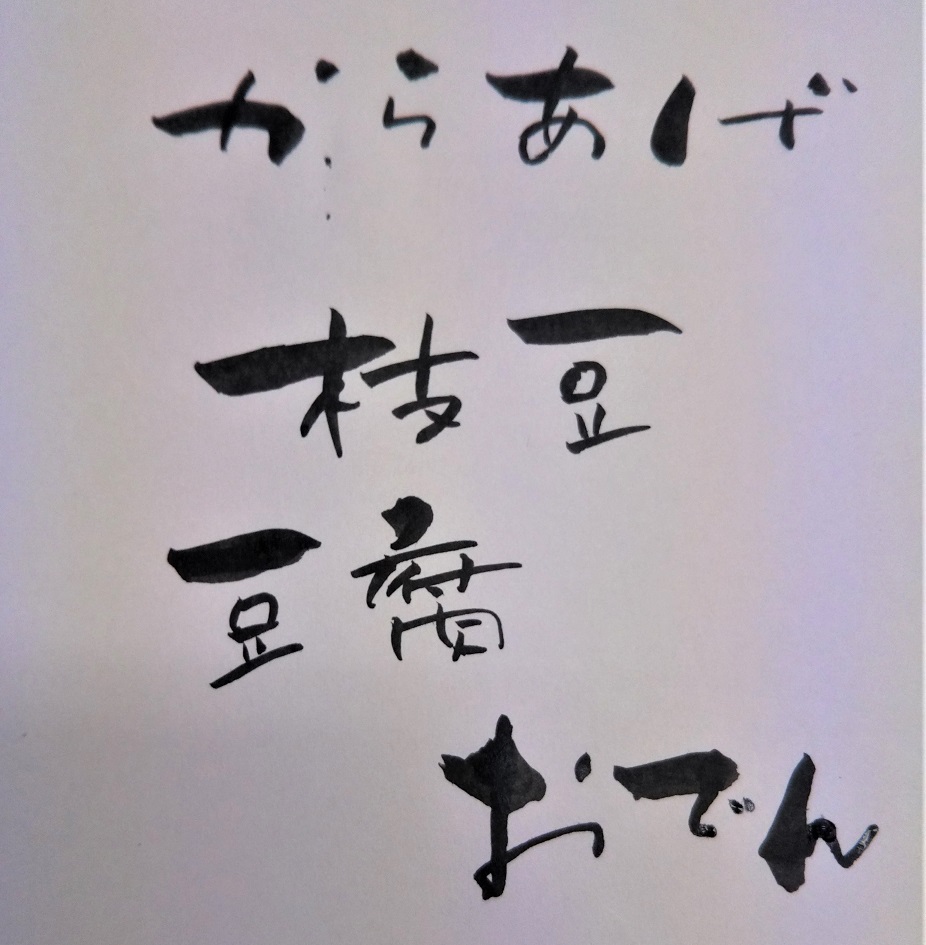 からあげ
枝豆
豆腐
おでん